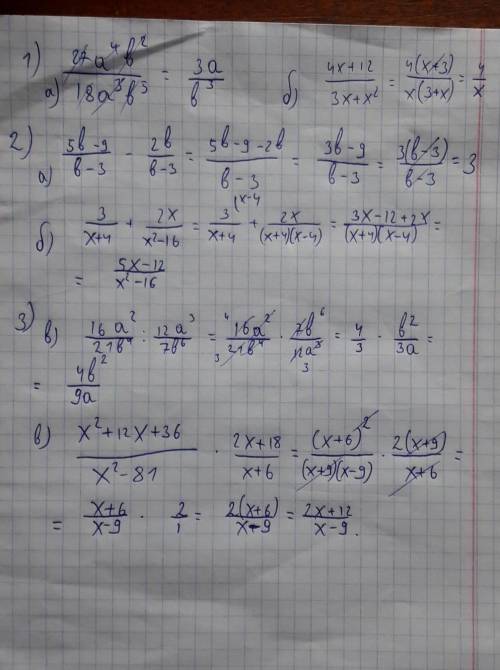 1) а) 27a⁴b² / 18a³b⁵ = 3a / b³    б) (4x+12) / (3x+x²) = 4(x+3) / x(3+x) = 4/x
2) а) (5b-9) / (b-3) - 2b / (b-3) = (5b-9-2b) / (b-3) = (3b-9) / (b-3) = 3(b-3) / (b-3) = 3
б) 3 / (x+4) + 2x / (x²-16) = 3 (x-4 / (x+4) + 2x / (x+4)(x-4) = (3x-12+2x) / (x+4)(x-4) =
= (5x-12) / (x²-16)
3) в) 16a² / 21b⁴ : 12a³ / 7b⁶ = 4 16a² / 3 21b⁴ · 7b⁶ / 12a³ 3 = 4/3 · b² / 3a =
= 4b² / 9a
в) (x²+12x+36) / (x²-81) · (2x+18) / (x+6) = (x+6)² / (x+9)(x-9) · 2(x+9) / (x+6) =
= (x+6) / (x-9) · 2/1 = 2(x+6) / (x-9) = (2x+12) / (x-9).